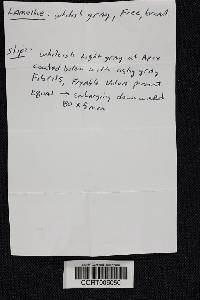 Lamellae: whitish gray, Free, broad
Stipe: whitish light gray at Apex
coated below with ashy gray
Fibrils, Fryable
equal → enlarging downward
80 x 5 mm